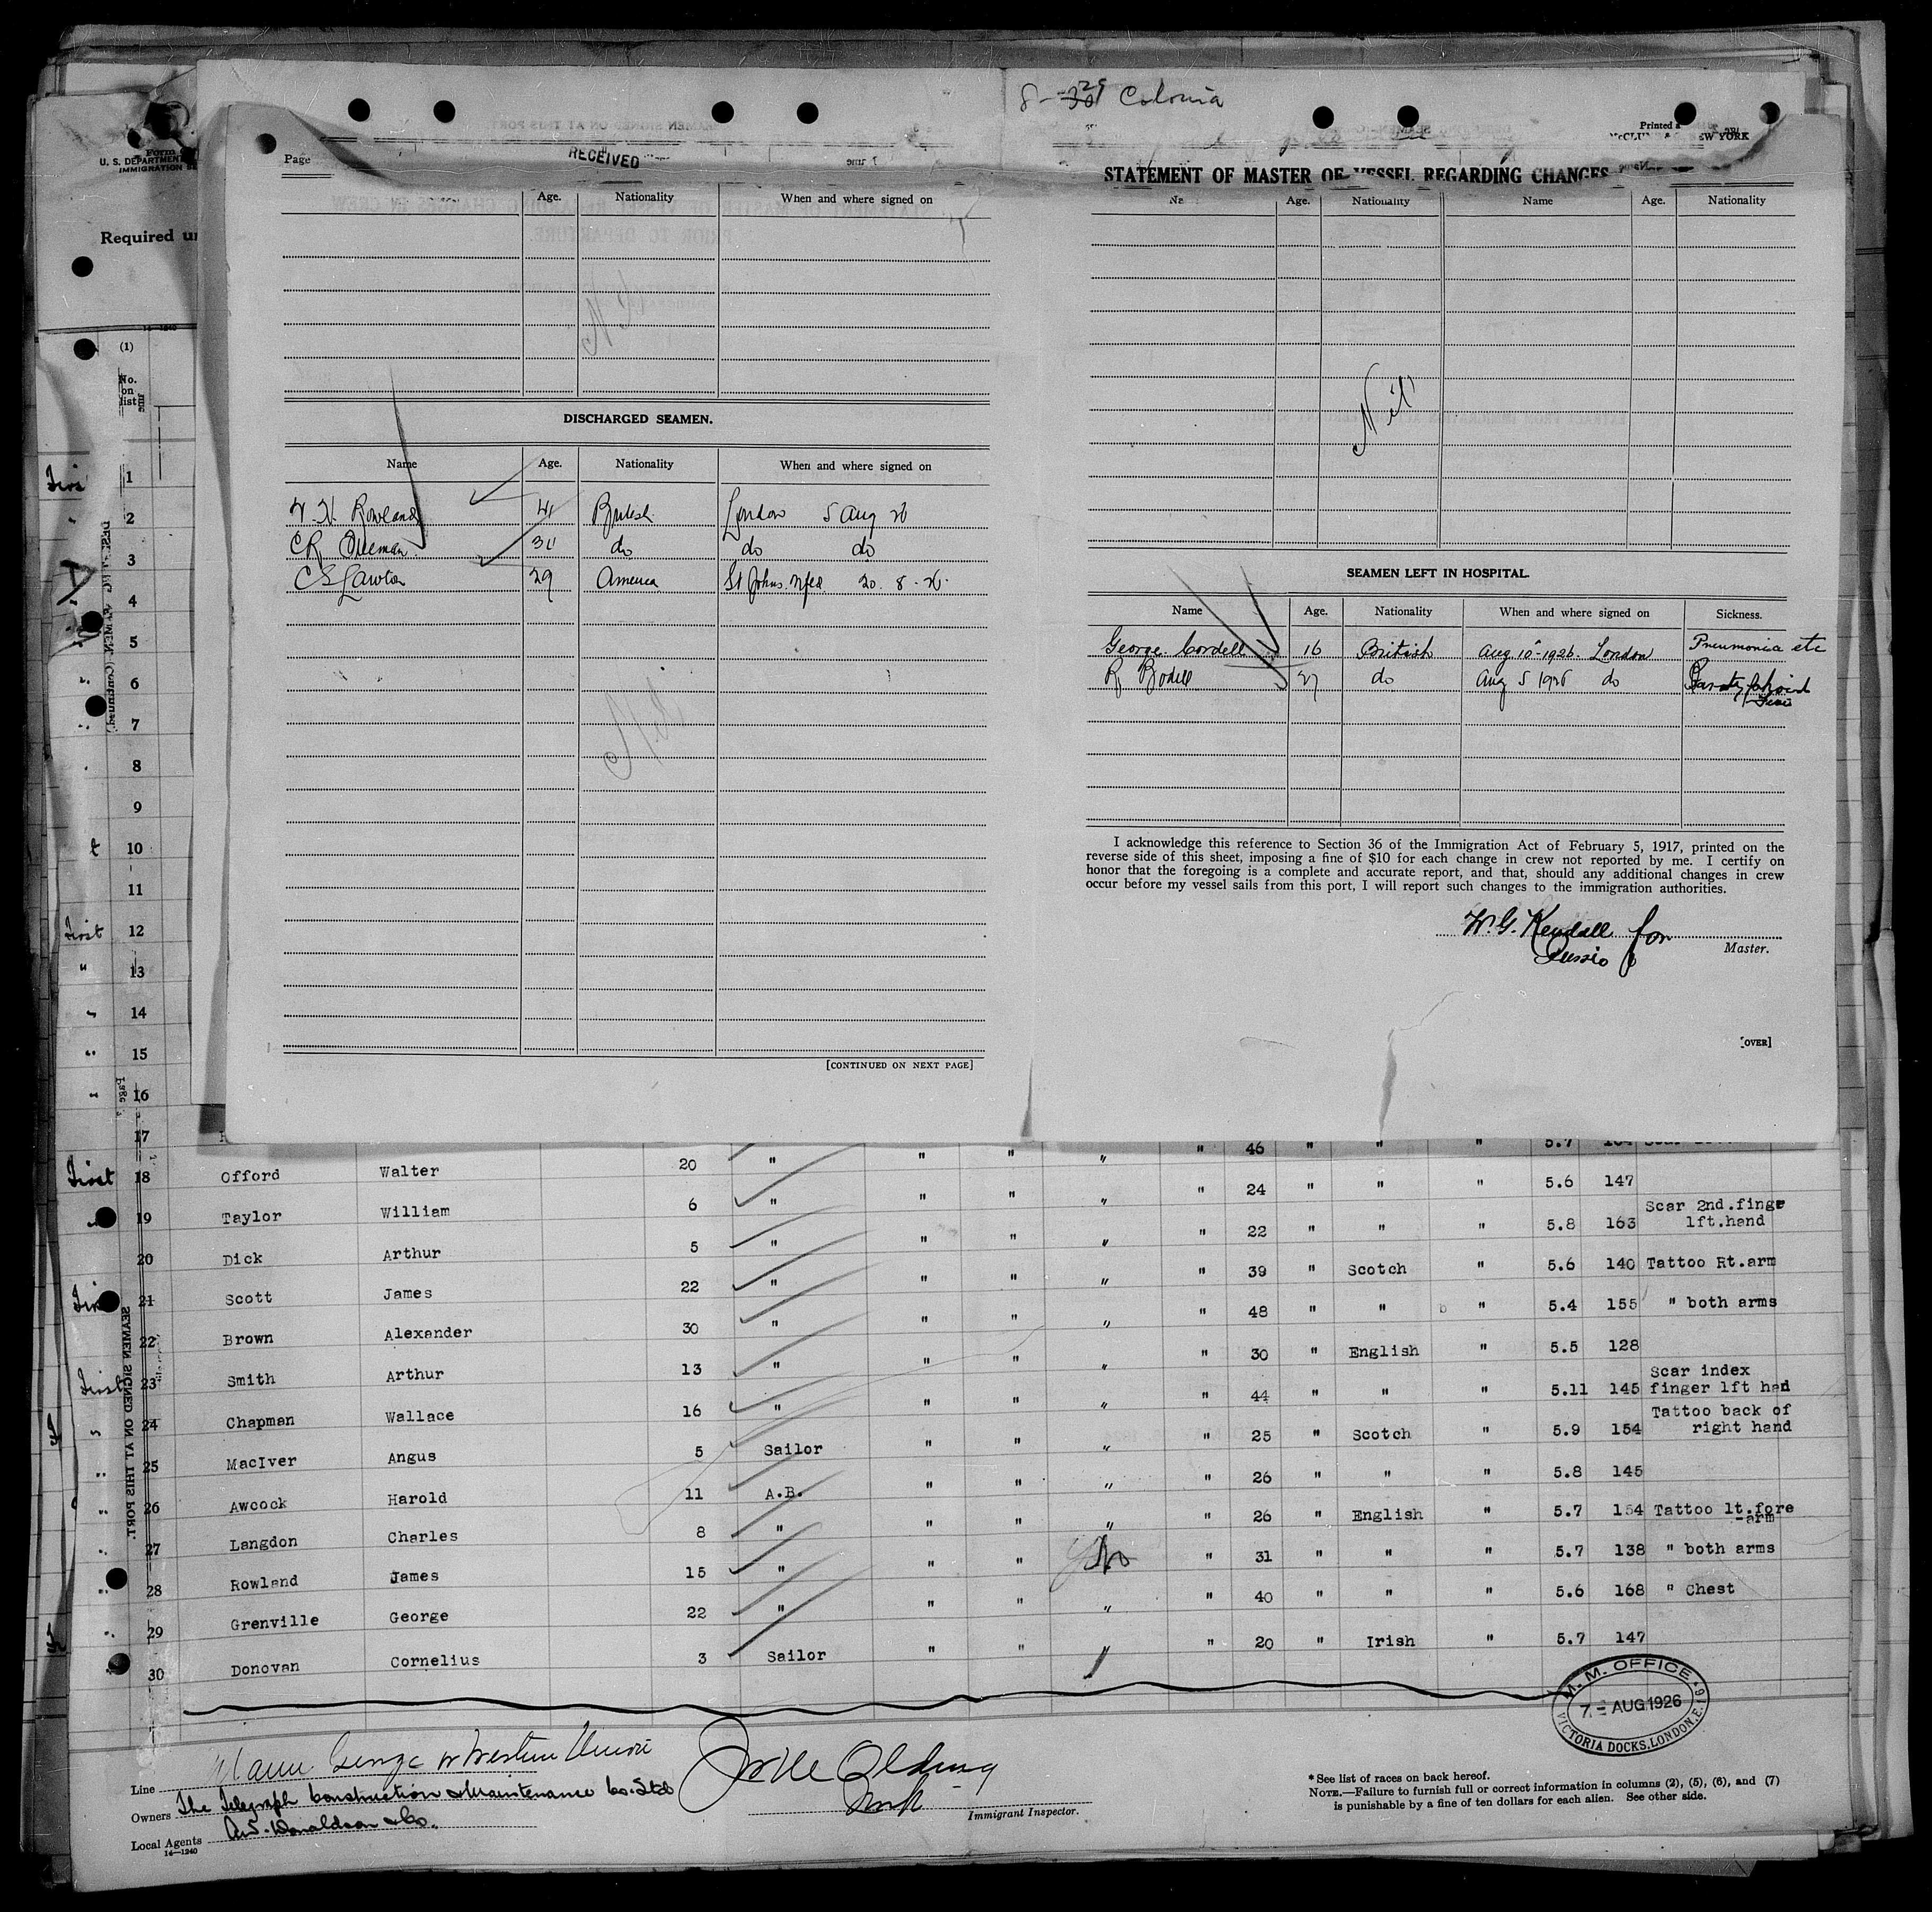 8- 30 29 Colonia
Printed a
NEW YORK
U. S. DEPARTMENT
IMMIGRATION SE
Required un
Page
RECEIVED
STATEMENT OF MASTER OF VESSEL REGARDING CHANGES
Age. Nationality When and where signed on
Age. Nationality Name Age. Nationality
Nil
DISCHARGED SEAMEN.
Name Age. Nationality When and where signed on
Rowland 41 British London 5 Aug 26
31 do do do
C S Lawton 29 America St Johns. Nfld 20. 8. 26.
Nil
[CONTINUED ON NEXT PAGE]
Nil
SEAMEN LEFT IN HOSPITAL.
Name Age. Nationality When and where signed on Sickness.
George Cordell 16 British Aug 10-1926. London Pneumonia etc
R Bodell 27 do Aug 5 1926 do
I acknowledge this reference to Section 36 of the Immigration Act of February 5, 1917, printed on the
reverse side of this sheet, imposing a fine of $10 for each change in crew not reported by me. I certify on
honor that the foregoing is a complete and accurate report, and that, should any additional changes in crew
occur before my vessel sails from this port, I will report such changes to the immigration authorities.
W. G. Kendall for
Master.
[OVER]
(1)
No.
on
list
First 1
2
3
4
5
6
7
8
9
10
11
First 12
" 13
14
15
16
17 46 " " " 5.7
First 18 Offord Walter 20 " " " " " 24 " " " 5.6 147
19 Taylor William 6 " " " " " 22 " " " 5.8 163 Scar 2nd.finge
lft.hand
20 Dick Arthur 5 " " " " " 39 " Scotch " 5.6 140 Tattoo Rt.arm
21 Scott James 22 " " " " " 48 " " " 5.4 155 " both arms
22 Brown Alexander 30 " " " " " 30 " English " 5.5 128
First 23 Smith Arthur 13 " " " " " 44 " " " 5.11 145 Scar index
finger lft had
24 Chapman Wallace 16 " " " " " 25 " Scotch " 5.9 154 Tattoo back of
right hand
25 MacIver Angus 5 Sailor " " " " 26 " " " 5.8 145
26 Awcock Harold 11 A.B. " " " " 26 " English " 5.7 154 Tattoo lt.fore
-arm
27 Langdon Charles 8 " " " " " 31 " " " 5.7 138 " both arms
28 Rowland James 15 " " " No " 40 " " " 5.6 168 " Chest
29 Grenville George 22 " " " " " 20 " Irish " 5.7 147
30 Donovan Cornelius 3 Sailor " "
SEAMEN SIGNED ON AT THIS PORT.
M. M. OFFICE
7 - AUG 1926
VICTORIA DOCKS, LONDON, E.16
Line George Western Union
Owners The Telegraph Construction & Maintenance Co. Ltd
Local Agents Donaldson & Co.
14—1240
Immigrant Inspector.
* See list of races on back hereof.
NOTE.—Failure to furnish full or correct information in columns (2), (5), (6), and (7)
is punishable by a fine of ten dollars for each alien. See other side.